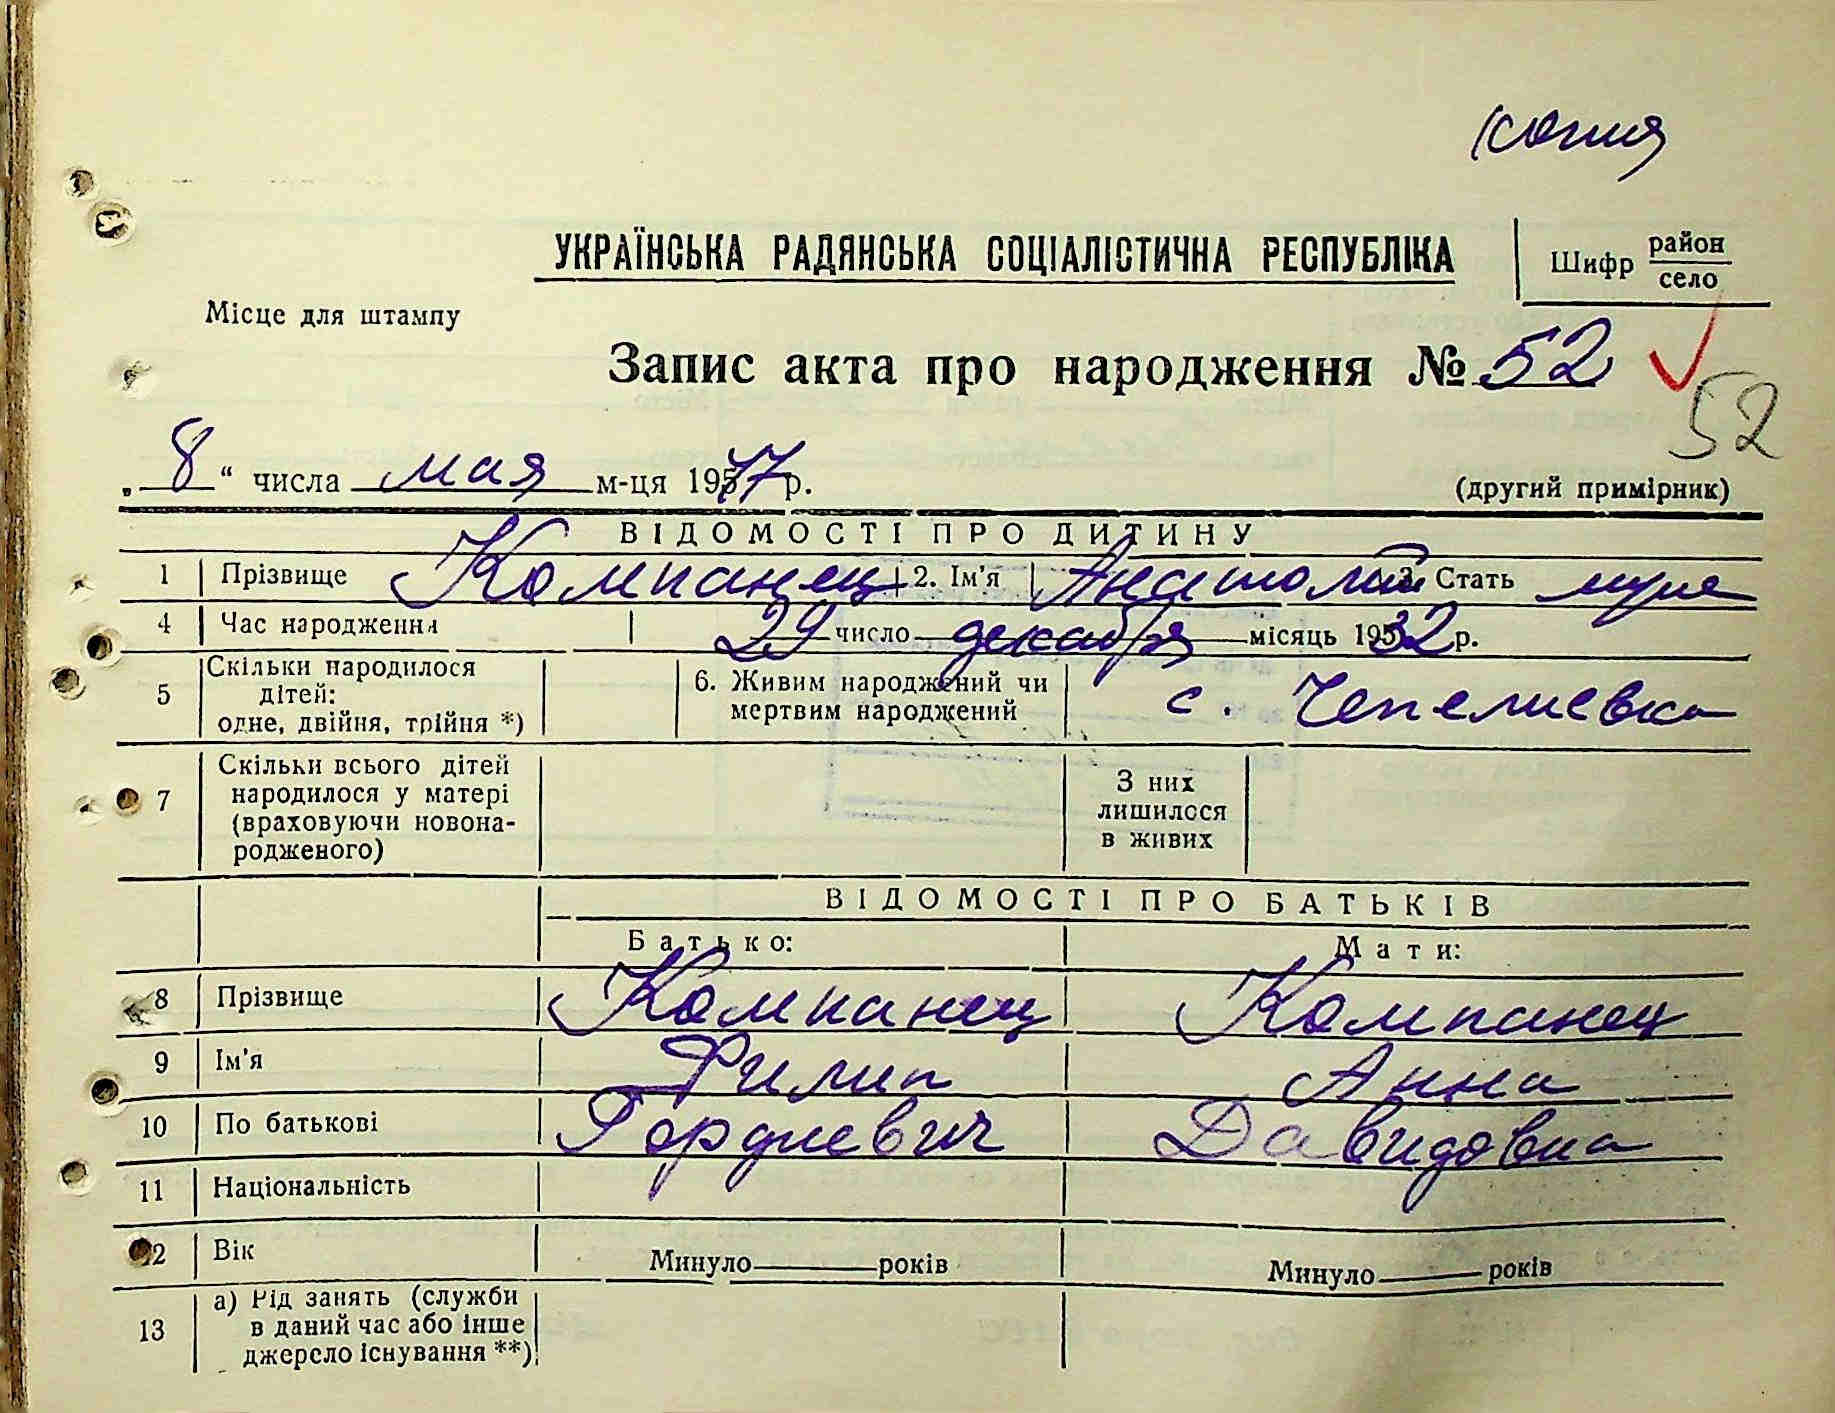 копия
УКРАЇНСЬКА РАДЯНСЬКА СОЦІАЛІСТИЧНА РЕСПУБЛІКА
Шифр район
село
Місце для штампу
Запис акта про народження № 52
52
„ 8 “ числа мая м-ця 1957 77 р.
(другий примірник)
ВІДОМОСТІ ПРО ДИТИНУ
1 Прізвище Компанец 2. Ім'я Анатолий 3. Стать муже
4 Час народження 29 число декабря місяць 195 32 р.
5 Скільки народилося дітей: одне, двійня, трійня *) 6. Живим народжений чи мертвим народжений с. Чепелиевка
7 Скільки всього дітей народилося у матері (враховуючи новонародженого) З них лишилося в живих
ВІДОМОСТІ ПРО БАТЬКІВ
Батько: Мати:
8 Прізвище Компанец Компанец
9 Ім'я Филип Анна
10 По батькові Гордиевич Давидовна
11 Національність
12 Вік Минуло років Минуло років
13 а) Рід занять (служби в даний час або інше джерело існування **)